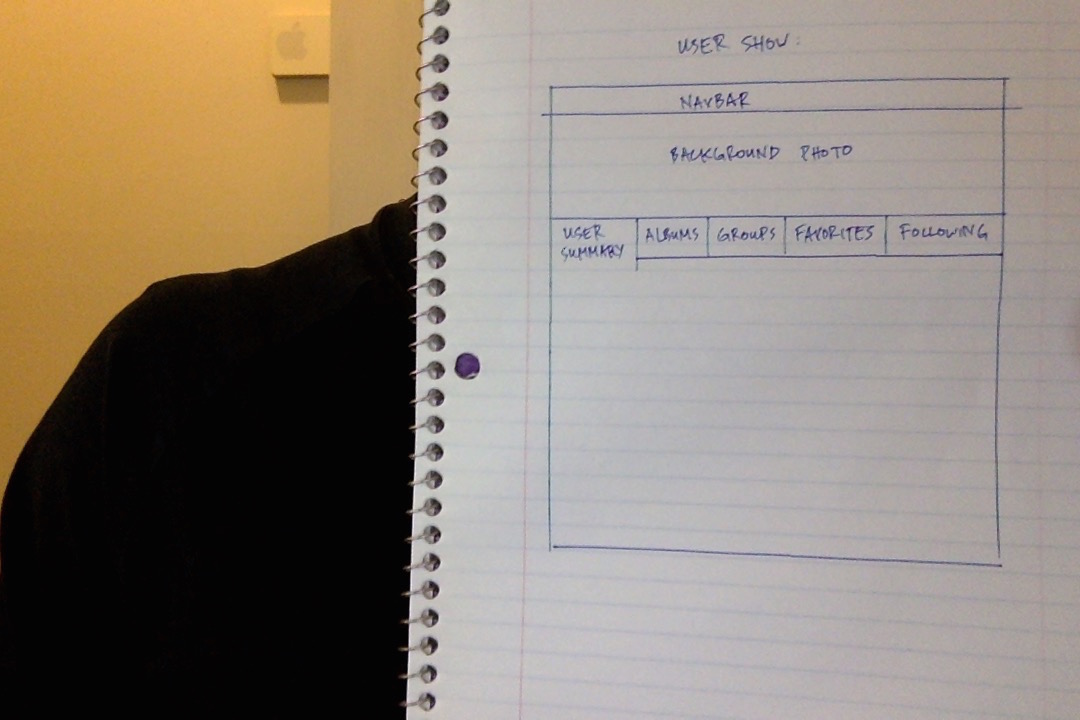 USER SHOW:
NAVBAR
BACKGROUND PHOTO
USER SUMMARY
ALBUMS
GROUPS
FAVORITES
FOLLOWING